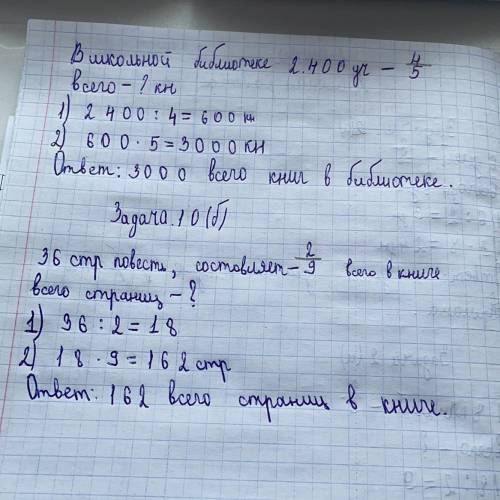 В школьной библиотеке 2.400 уч – 4/5
всего – ? кн
1) 2 400 : 4 = 600 кн
2) 600 · 5 = 3000 кн
Ответ: 3000 всего книг в библиотеке.
Задача.10(б)
36 стр повесть, составляет – 2/9 всего в книге
всего страниц – ?
1) 36 : 2 = 18
2) 18 · 9 = 162 стр
Ответ: 162 всего страниц в книге.